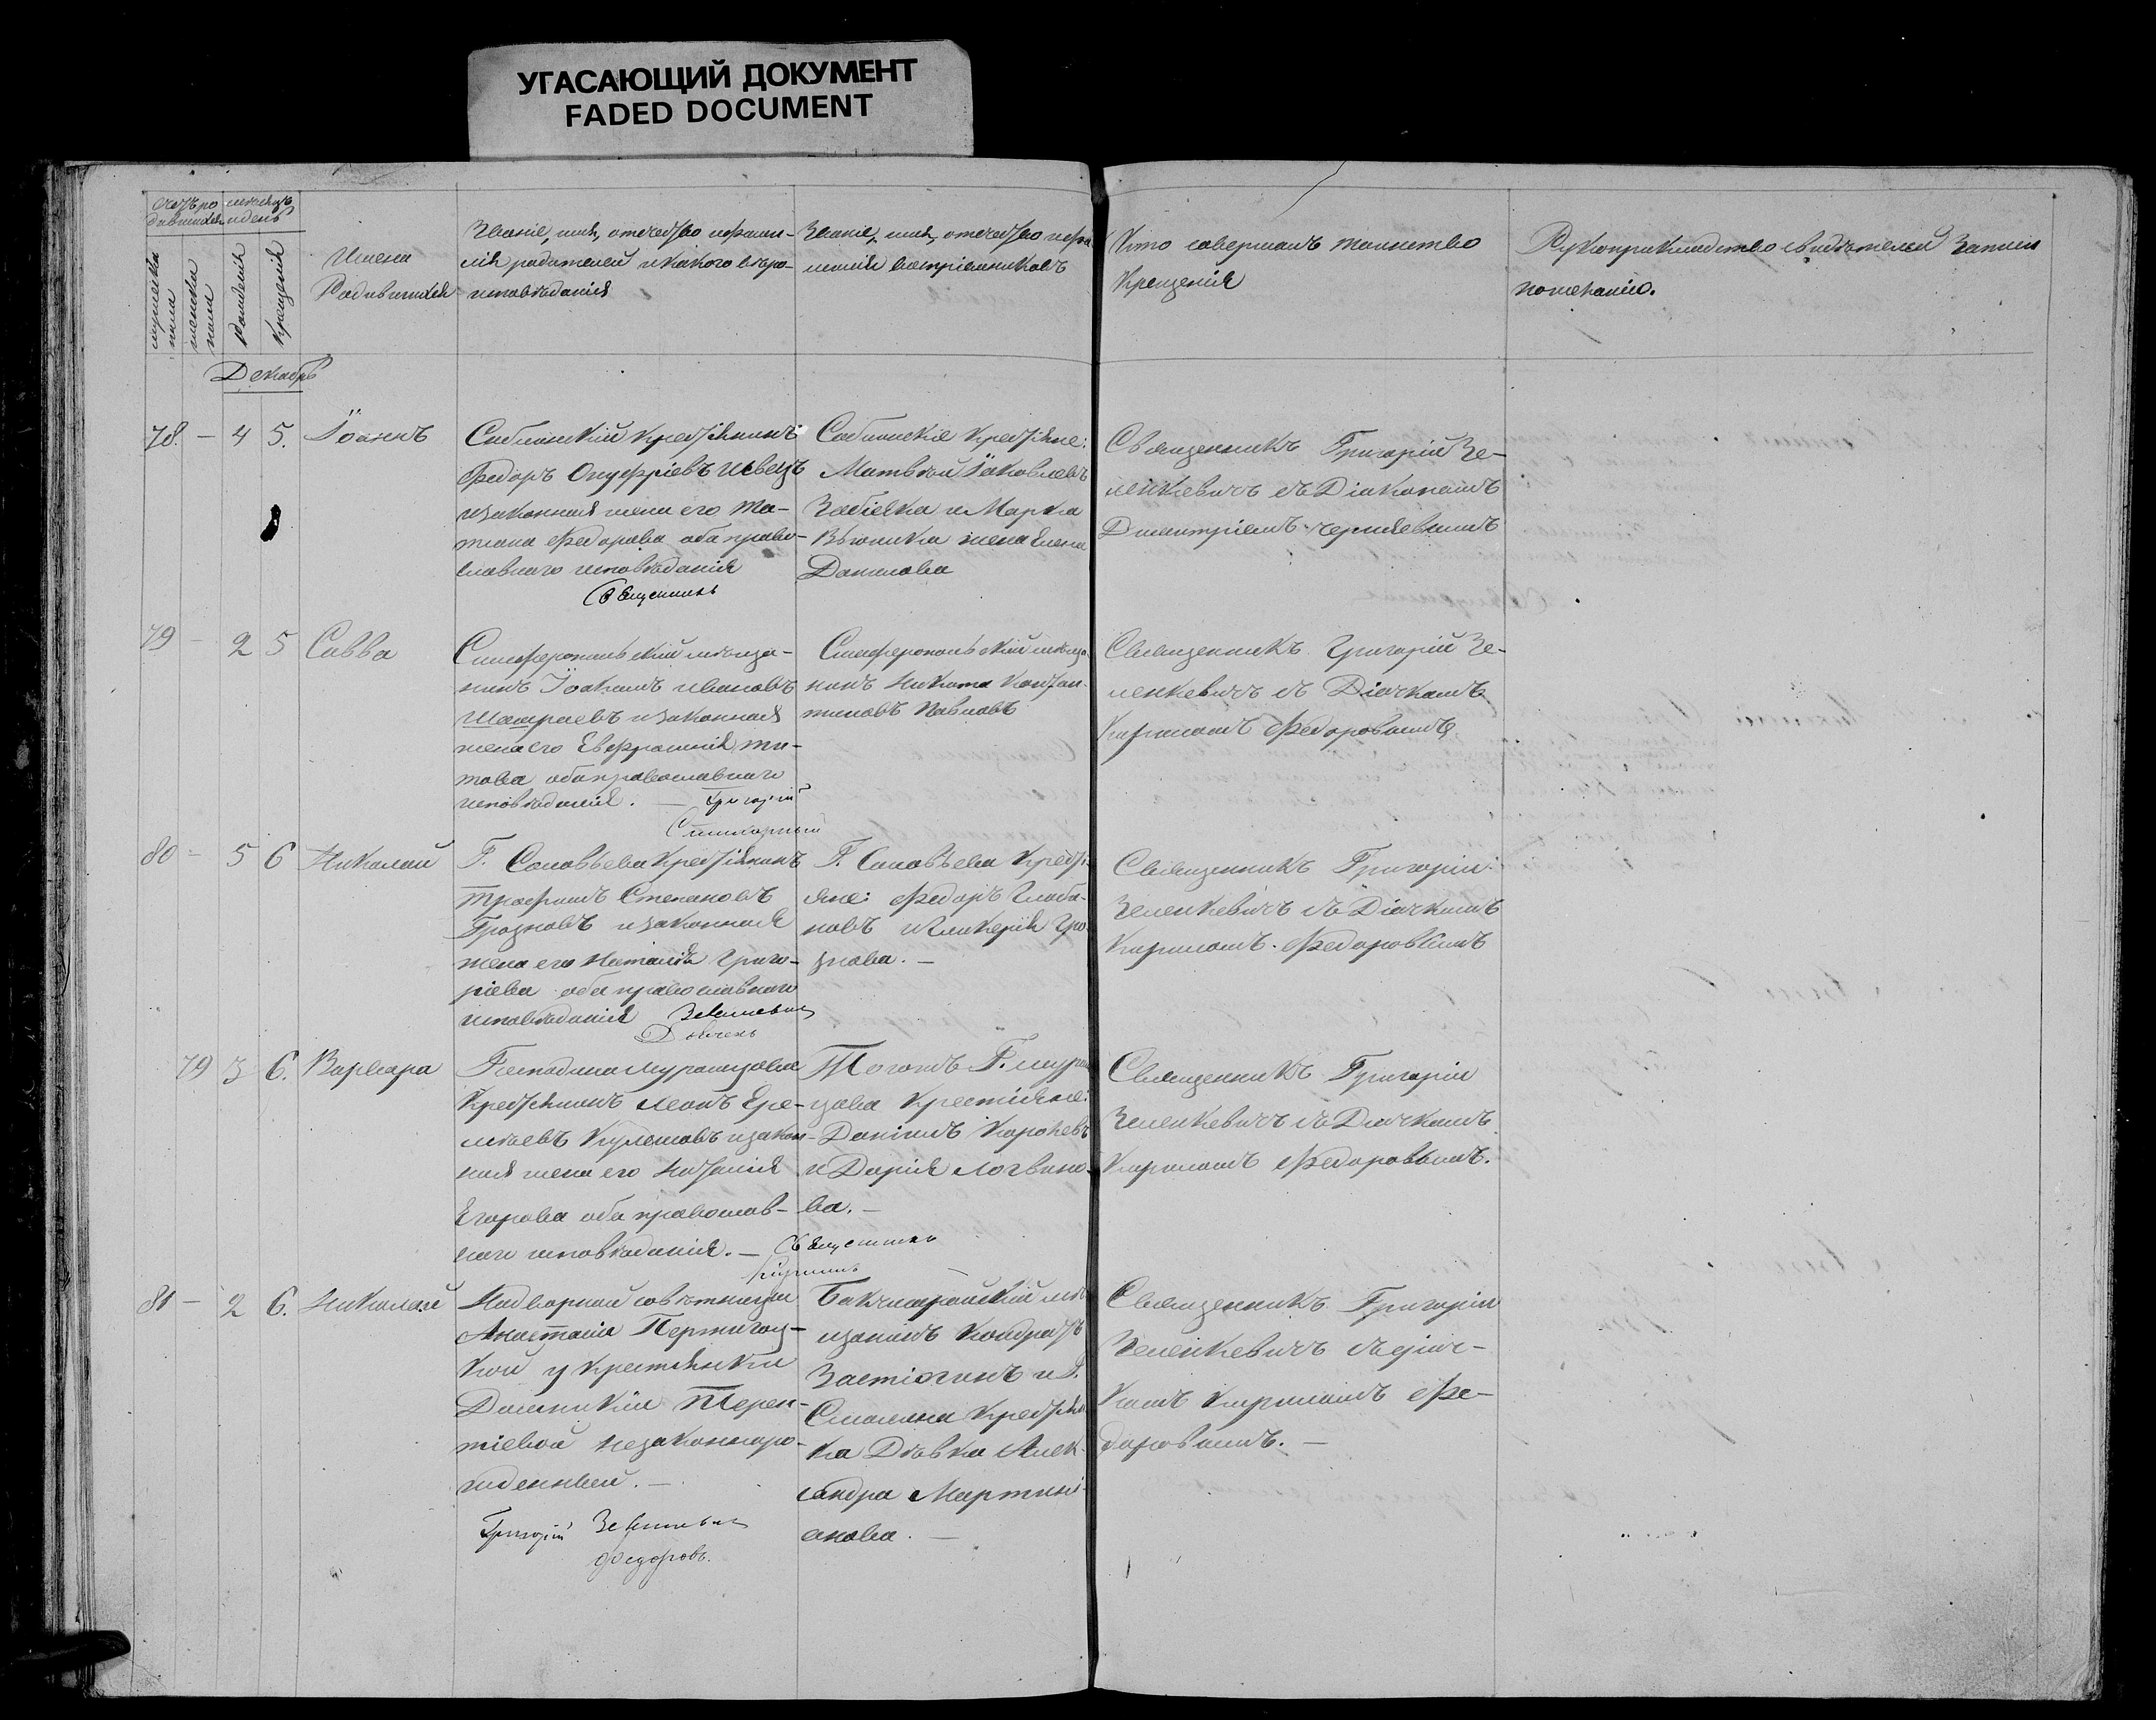 УГАСАЮЩИЙ ДОКУМЕНТ
FADED DOCUMENT
Счетъ ро мѣсяцъ
дившихся и день
мужеска пола
женска пола
Рожденія
Крещенія
Имена
Родившихся
Званіе, имя, отечество и фами-
лія родителей и какого вѣро-
исповѣданія
Званіе, имя, отечество и фа-
милія воспріемниковъ
Кто совершалъ таинство
Крещенія
Рукоприкладство свидѣтелей записи
по желанію.
Декабрь
78. — 4 5. Іоаннъ
Саблинскій Крестьянинъ
Федоръ Онуфріевъ Швецъ
и законная жена его Та-
тіана Федорова оба право-
славнаго исповѣданія
Священникъ
Саблинскіе Крестьяне:
Матвѣй Іаковлевъ
и Марка
жена Елена
Данилова
Священникъ Григорій Зе-
ленкевичъ съ Діакономъ
Димитріемъ Чернявскимъ
79 — 2 5 Савва
Симферопольскій мѣща-
нинъ Іоакимъ Ивановъ
и законная
жена его Евфросинія Ти-
това оба православнаго
исповѣданія. — Григорій
Симферопольскій мѣща-
нинъ Никита Констан-
тиновъ Павловъ
Священникъ Григорій Зе-
ленкевичъ съ Дiячкомъ
Кириломъ Федоровымъ
80 — 5 6 Николай
Г. Соловьева Крестьянинъ
Трофимъ Степановъ
Грозновъ и законная
жена его Наталія Григо-
ріева оба православнаго
исповѣданія Зеленкевичъ
Г. Соловьева Крестья-
яне: Федоръ
новъ и Гликерія Гро-
знова. —
Священникъ Григорій
Зеленкевичъ съ Дiячкомъ
Кириломъ Федоровымъ
79 3 6. Варвара
Господина Муромцова
Крестьянинъ Леонъ Ере-
мѣевъ Кулешовъ и закон-
ная жена его Наталія
Егорова оба православ-
наго исповѣданія. — Священникъ
Кирилъ
Тогожъ Г. Муром-
цова Крестьяне:
Даніилъ
и Дарія Логвино-
ва. —
Священникъ Григорій
Зеленкевичъ съ Дiячкомъ
Кириломъ Федоровымъ.
81 — 2 6. Николай
Надворной совѣтницы
Анастасіи
кой у Крестьянки
Домникіи Терен-
тіевой незаконноро-
жденный. —
Григорій Зеленкевичъ
Федоровъ.
Бакчисарайскій мѣ-
щанинъ Кондратъ
и Г.
Крестьян-
ка Дѣвка Алек-
сандра Мартині-
анова. —
Священникъ Григорій
Зеленкевичъ съ дiяч-
комъ Кириломъ Фе-
доровымъ. —